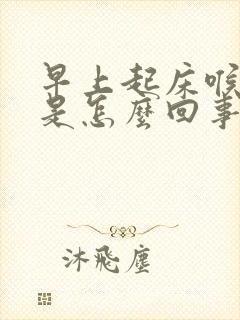 早上起床喉
是怎麼回事
沐飛塵